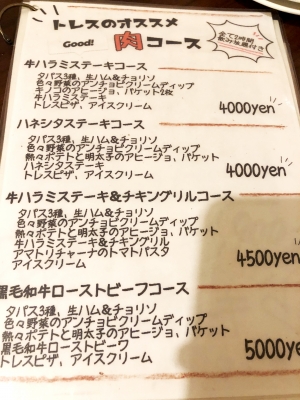 トレスのオススメ
Good! 肉コース
全て2時間
飲み放題付き
牛ハラミステーキコース
タパス3種、生ハム&チョリソ
色々野菜のアンチョビクリームディップ
キノコのアヒージョ、バケット2段
牛ハラミステーキ
トレスピザ、アイスクリーム
4000yen
ハネシタステーキコース
タパス3種、生ハム&チョリソ
色々野菜のアンチョビクリームディップ
熱々ポテトと明太子のアヒージョ、バケット
ハネシタステーキ
トレスピザ、アイスクリーム
4000yen
牛ハラミステーキ&チキングリルコース
タパス3種、生ハム&チョリソ
色々野菜のアンチョビクリームディップ
熱々ポテトと明太子のアヒージョ、バケット
牛ハラミステーキ&チキングリル
アマトリチャーナのトマトパスタ
アイスクリーム
4500yen
黒毛和牛ローストビーフコース
タパス3種、生ハム&チョリソ
色々野菜のアンチョビクリームディップ
熱々ポテトと明太子のアヒージョ、バケット
黒毛和牛ローストビーフ
トレスピザ、アイスクリーム
5000yen